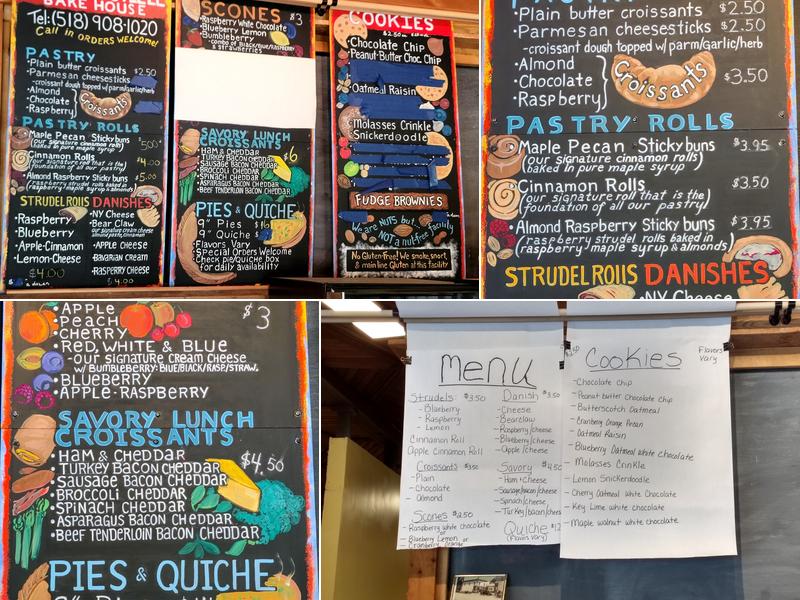 BAKE HOUSE
Tel:(518) 908-1020
Call in ORDERS WELCOME!
PASTRY
•Plain butter croissants $2.50
•Parmesan cheesesticks
-croissant dough topped w/parm/garlic/herb
•Almond
•Chocolate
•Raspberry
Croissants
PASTRY ROLLS
Maple Pecan Stickybuns
(our signature cinnamon rolls
baked in pure maple syrup 5.00
Cinnamon Rolls
(our signature roll that is the
foundation of all our pastry) $4.00
Almond Raspberry Sticky buns 5.00
STRUDELROLLS DANISHES
•Raspberry
•Blueberry
•Apple-Cinnamon
•Lemon-Cheese
$4.00
•NY Cheese
•Bear Claw
•APPLE CHEESE
•BAVARIAN CREAM
•RASPBERRY CHEESE
$4.00
SCONES $3
•Raspberry White Chocolate
•Blueberry Lemon
•Bumbleberry
- combo of Black/Blue/Raspberries
& strawberries
SAVORY LUNCH
CROISSANTS
•HAM & CHEDDAR $6
•TURKEY BACON CHEDDAR
•SAUSAGE BACON CHEDDAR
•BROCCOLI CHEDDAR
•SPINACH CHEDDAR
•ASPARAGUS BACON CHEDDAR
•BEEF TENDERLOIN BACON CHEDDAR
PIES & QUICHE
9" Pies
9" Quiche
Flavors Vary
Special Orders Welcome
Check pie/Quiche box
for daily availability
COOKIES
•Chocolate Chip
•Peanut-Butter Choc. Chip
•Oatmeal Raisin
•Molasses Crinkle
•Snickerdoodle
FUDGE BROWNIES
We are NUTS but
NOT a nut-free facility
No Gluten-Free! We smoke, snort,
& mainline Gluten at this facility
•Plain butter croissants $2.50
•Parmesan cheesesticks $2.50
-croissant dough topped w/parm/garlic/herb
•Almond
•Chocolate
•Raspberry
Croissants
$3.50
PASTRY ROLLS
•Maple Pecan Stickybuns $3.95
(our signature cinnamon rolls)
baked in pure maple syrup
•Cinnamon Rolls $3.50
(our signature roll that is the
foundation of all our pastry)
•Almond Raspberry Sticky buns $3.95
(raspberry strudel rolls baked in
raspberry-maple syrup & almonds)
STRUDELROLLS DANISHES
•NY Cheese
•APPLE $3
•PEACH
•CHERRY
•RED, WHITE & BLUE
-OUR SIGNATURE CREAM CHEESE
W/ BUMBLEBERRY: BLUE/BLACK/RASP/STRAW.
•BLUEBERRY
•APPLE-RASPBERRY
SAVORY LUNCH
CROISSANTS
•HAM & CHEDDAR
•TURKEY BACON CHEDDAR $4.50
•SAUSAGE BACON CHEDDAR
•BROCCOLI CHEDDAR
•SPINACH CHEDDAR
•ASPARAGUS BACON CHEDDAR
•BEEF TENDERLOIN BACON CHEDDAR
PIES & QUICHE
Menu
Strudels: $3.50
- Blueberry
- Raspberry
- Lemon
Cinnamon Roll
Apple Cinnamon Roll
Croissants $3.50
- Plain
- Chocolate
- Almond
Scones $2.50
- Raspberry white chocolate
- Blueberry Lemon or
Cranberry Orange
Danish $3.50
- Cheese
- Bearclaw
- Raspberry/cheese
- Blueberry/cheese
- Apple/cheese
Savory $4.50
- Ham + Cheese
- Sausage/bacon/cheese
- Spinach/cheese
- Turkey/bacon/cheese
Quiche $12
(Flavors Vary)
Cookies
Flavors
Vary
- Chocolate chip
- Peanut butter chocolate chip
- Butterscotch Oatmeal
- Cranberry Orange Pecan
- Oatmeal Raisin
- Blueberry Oatmeal white chocolate
- Molasses Crinkle
- Lemon Snickerdoodle
- Cherry Oatmeal White Chocolate
- Key Lime white chocolate
- Maple walnut white chocolate